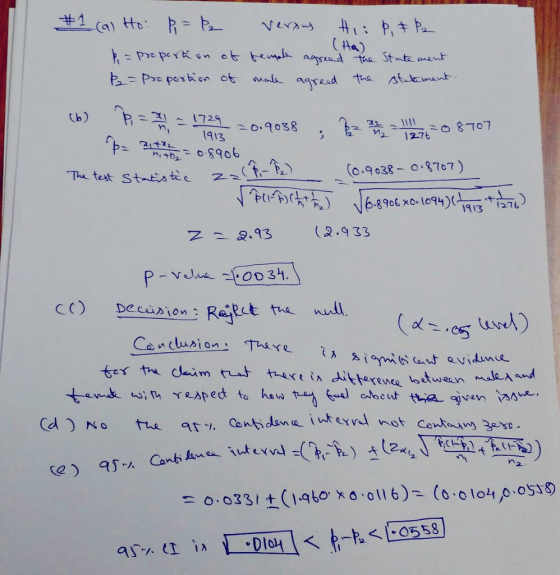 #1 (a) Ho: P₁ = P₂ versus H₁: P₁ ≠ P₂
(Ha)
P₁ = proportion of female agreed the statement
P₂ = proportion of male agreed the statement.
(b) p̂₁ = x₁/n₁ = 1729/1913 = 0.9038 ; p̂₂ = x₂/n₂ = 1111/1276 = 0.8707
p̂ = x₁+x₂/n₁+n₂ = 0.8906
The test statistic Z = (p̂₁-p̂₂)/√p̂(1-p̂)(1/n₁+1/n₂) = (0.9038 - 0.8707)/√(0.8906×0.1094)(1/1913+1/1276)
Z = 2.93 (2.933
p-value = .0034.
(c) Decision: Reject the null. (α = .05 level)
Conclusion: There is significant evidence
for the claim that there is difference between males and
female with respect to how they feel about the given issue.
(d) No the 95% confidence interval not contains zero.
(e) 95% Confidence interval = (p̂₁-p̂₂) ± (Zα/₂ √p̂₁(1-p̂₁)/n₁ + p̂₂(1-p̂₂)/n₂)
= 0.0331 ± (1.960 × 0.0116) = (0.0104, 0.0558)
95% CI is .0104 < P₁-P₂ < .0558